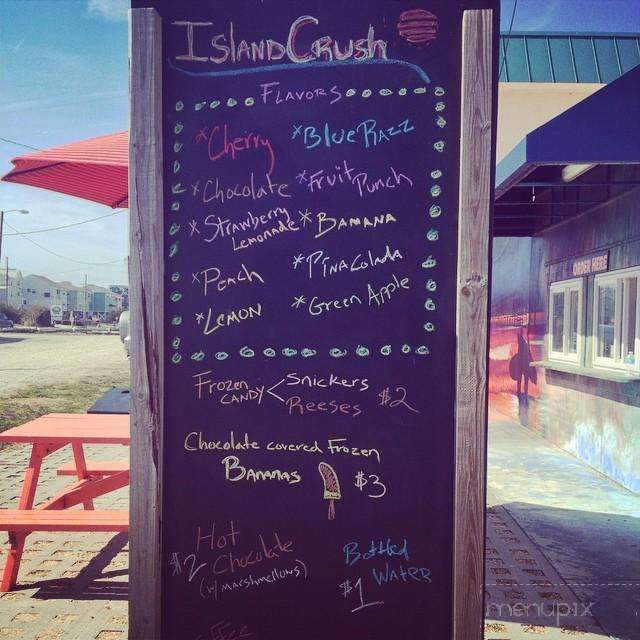 IslandCrush
Flavors
*Cherry
*Blue Razz
*Chocolate
*Fruit Punch
*Strawberry
Lemonade
*Banana
*Peach
*Pina Colada
*Lemon
*Green Apple
Frozen
Candy < Snickers
Reeses $2
Chocolate covered Frozen
Bananas $3
Hot
$2 Chocolate
(w/ marshmellows)
Bottled
Water
$1
menupix